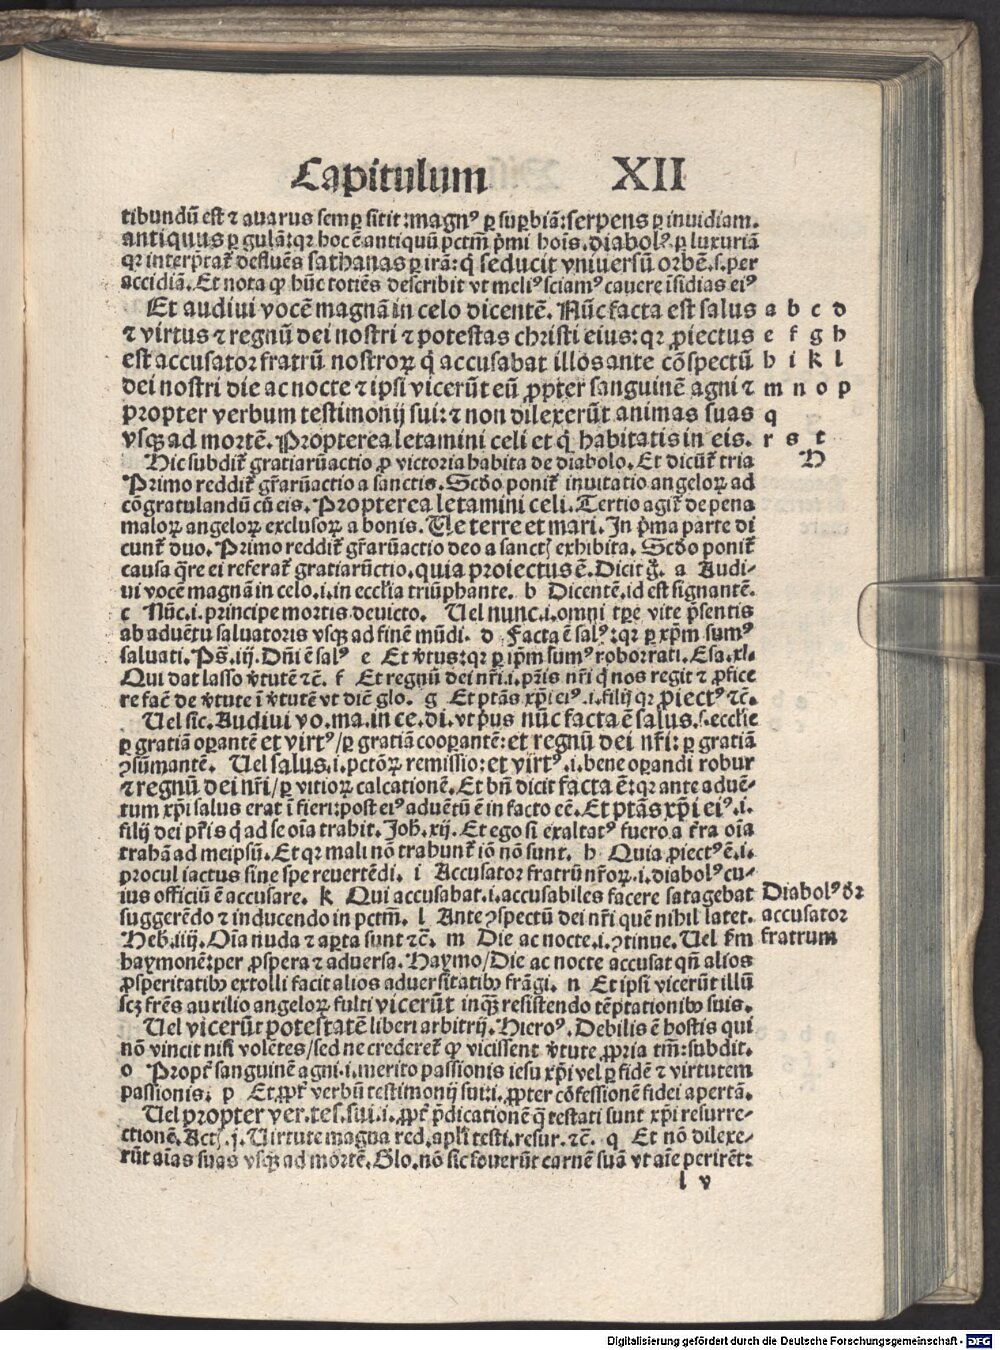 Capitulum XII
tibundū est ⁊ auarus semꝑ sitit:magnꝰ ꝑ suꝑbiā:serpens ꝑ inuidiam.
antiquus ꝑ gulā:qꝛ hoc ē antiquū pctm̄ pͥmi hoīs.diabolꝰ.ꝑ luxuriā
qꝛ interp̄tat᷑ defluēs sathanas ꝑ irā:q̇ seducit vniuersū orbē.s.per
accidiā.Et nota ꝙ hūc totiēs describit vt meliꝰ sciamꝰ cauere īsidias eiꝰ
Et audiui vocē magnā in celo dicentē. Nūc facta est salus a b c d
⁊ virtus ⁊ regnū dei nostri ⁊ potestas christi eius:qꝛ ꝓiectus e f g h
est accusator fratrū nostroꝝ q̇ accusabat illos ante cōspectū h i k l
dei nostri die ac nocte ⁊ ipsi vicerūt eū ꝓpter sanguinē agni ⁊ m n o p
propter verbum testimonij sui:⁊ non dilexerūt animas suas q
vsqꝫ ad mortē. Propterea letamini celi et q̇ habitatis in eis. r s t
Hic subdit᷑ gratiarūactio ꝓ victoria habita de diabolo. Et dicūt᷑ tria H
Primo reddit᷑ gr̄arūactio a sanctis. Scd̄o ponit᷑ inuitatio angeloꝝ ad
cōgratulandū cū eis. Propterea letamini celi. Tertio agit᷑ de pena
maloꝝ angeloꝝ exclusoꝝ a bonis. Ue terre et mari. In pͥma parte di
cunt᷑ duo. Primo reddit᷑ gr̄arūactio deo a sanctꝭ exhibita. Scd̄o ponit᷑
causa q̄re ei referat᷑ gratiarūctio. quia proiectus ē. Dicit g̊. a Audi-
ui vocē magnā in celo.i.in ecclīa triūphante. b Dicentē.id est signantē.
c Nūc.i.principe mortis deuicto. Uel nunc.i.omni tꝑe vite p̄sentis
ab aduētu saluatoris vsqꝫ ad finē mūdi. d Facta ē salꝰ:qꝛ ꝑ xp̄m sumꝰ
saluati. Ps̄.iij. Dn̄i ē salꝰ e Et v̓tus:qꝛ ꝑ ip̄m sumꝰ roborati. Esa.xl.
Qui dat lasso v̓tutē ⁊c̄. f Et regnū dei nr̄i.i.pr̄is nr̄i q̇ nos regit ⁊ ꝓfice
re facē de v̓tute ī v̓tutē vt diē glo. g Et ptās xp̄i eiꝰ.i.filij qꝛ ꝓiectꝰ ⁊c̄.
Uel sic. Audiui vo.ma.in ce.di.vt pͥus nūc facta ē salus.s.ecclīe
ꝑ gratiā oꝑantē et virtꝰ/ꝑ gratiā cooꝑantē:et regnū dei nr̄i:ꝑ gratiā
ꝯsūmantē. Uel salus.i.pctōꝝ remissio:et virtꝰ.i.bene oꝑandi robur
⁊ regnū dei nr̄i/ꝑ vitioꝝ calcationē. Et bn̄ dicit facta ē:qꝛ ante aduē-
tum xp̄i salus erat ī fieri:post eiꝰ aduētū ē in facto eē. Et ptās xp̄i eiꝰ.i.
filij dei pr̄is q̇ ad se oīa trahit. Joh̄.xij. Et ego si exaltatꝰ fuero a t̓ra oīa
trahā ad meipsū. Et qꝛ mali nō trahunt᷑ iō nō sunt. h Quia ꝓiectꝰ ē.i.
procul iactus sine spe reuertēdi. i Accusator fratrū nr̄oꝝ.i.diabolꝰ cu-
ius officiū ē accusare. k Qui accusabat.i.accusabiles facere satagebat Diabolꝰ dr̄
suggerēdo ⁊ inducendo in pctm̄. l Ante ꝯspectū dei nr̄i quē nihil latet. accusator
Heb̄.iiij. Oīa nuda ⁊ aꝑta sunt ⁊c̄. m Die ac nocte.i.ꝯtinue. Uel s̄m fratrum
haymonē:per ꝓspera ⁊ aduersa. Haymo/Die ac nocte accusat qn̄ alios
ꝓsperitatibꝰ extolli facit alios aduersitatibꝰ frāgi. n Et ipsi vicerūt illū
scꝫ fr̄es auxilio angeloꝝ fulti vicerūt inqꝫ resistendo tēptationibꝰ suis.
Uel vicerūt potestatē liberi arbitrij. Hieroꝰ. Debilis ē hostis qui
nō vincit nisi volētes/sed ne crederet᷑ ꝙ vicissent v̓tute ꝓpria tm̄:subdit.
o Propt̓ sanguinē agni.i.merito passionis iesu xp̄i vel ꝑ fidē ⁊ virtutem
passionis. p Et ꝓpt̓ verbū testimonij sui:i.ꝓpter cōfessionē fidei apertā.
Uel propter ver.tes.sui.i.ꝓpt̓ p̄dicationē q̄ testati sunt xp̄i resurre-
ctionē. Actꝭ.j. Uirtute magna red.apl̄i testi.resur.⁊c̄. q Et nō dilexe-
rūt aīas suas vsqꝫ ad mortē. Glo.nō sic fouerūt carnē suā vt aīe perirēt:
l v
Digitalisierung gefördert durch die Deutsche Forschungsgemeinschaft - DFG